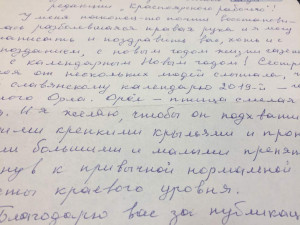 редакции "Красноярского рабочего"!
У меня наконец-то почти восстанови-
лась разболевшаяся правая рука, и я могу
написать и поздравить вас, хоть и с
опозданием, с новым годом жизни газеты
с календарным Новым годом!
ая от нескольких людей слышала,
славянскому календарю 2019-й –
ного Орла. Орёл – птица смелая
. И я желаю, чтобы он подхватил
своими крепкими крыльями и
большими и малыми
нув к привычной нормальной
краевого уровня.
Благодарю вас за публикац